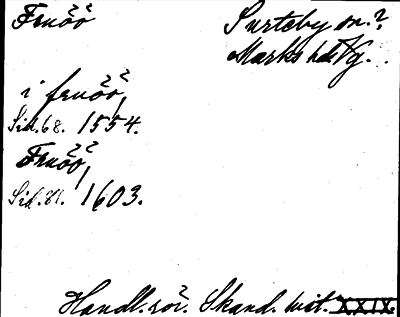 Fruöö Surteby sn.?
Marks hd. Vg.
i fruöö,
Sid. 68. 1554.
Fruöö,
Sid. 81. 1603.
Handl. rör. Skand. hist. XXIX.